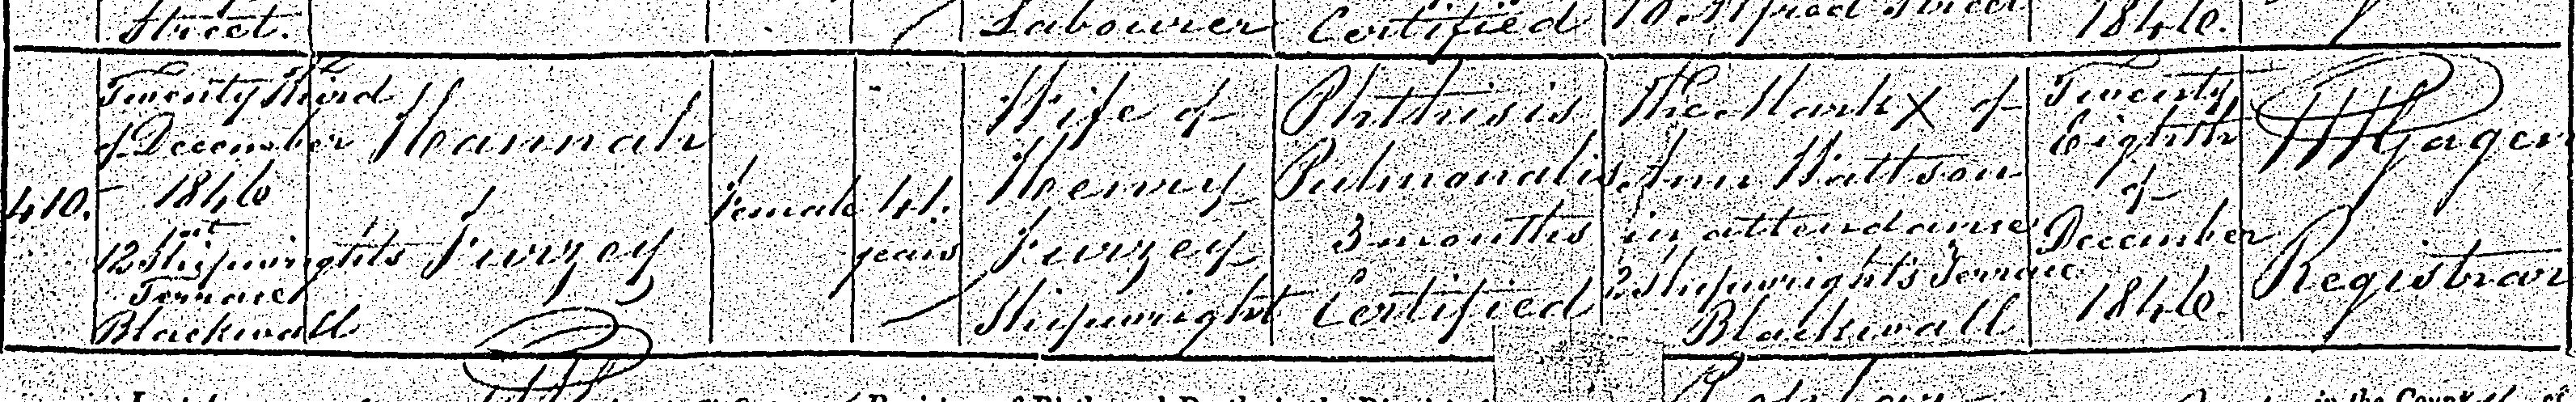 Street.
Labourer
Certified
1846.
410.
Twenty third
of December
1846
at
12 Shipwrights
Terrace
Blackwall
Hannah
Furzey
Female
41.
years
Wife of
Henry
Furzey
Shipwright
Phthisis
Pulmonalis
3 months
Certified
The Mark X of
Ann Wattson
in attendance
12 Shipwright's Terrace
Blackwall
Twenty
Eighth
of
December
1846.
Registrar
in the County of